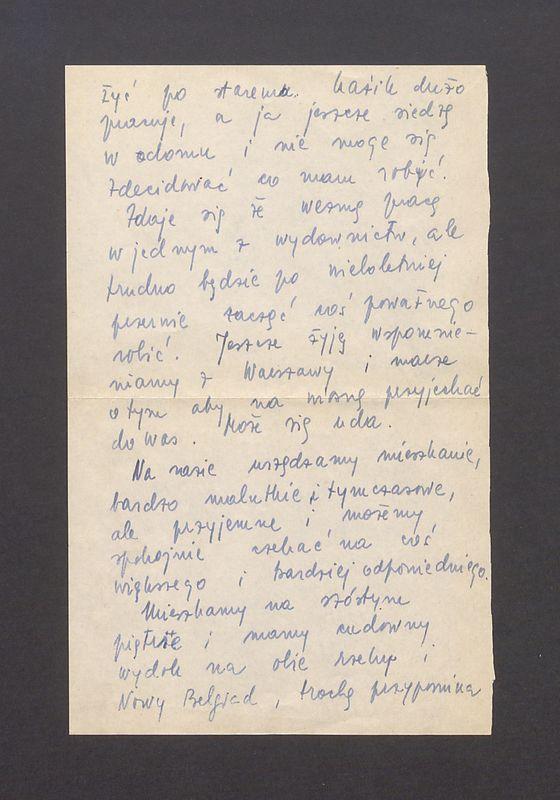 żyć po staremu. Kazik dużo
pracuje, a ja jeszcze siedzę
w domu i nie mogę się
zdecidować co mam robić.
Zdaje się że wezmę pracę
w jednym z wydawnictw, ale
trudno będzie po wieloletniej
przerwie zacząć coś poważnego
robić. Jeszcze żyję wspomnie-
niamy z Warszawy i marzę
o tym aby na wiosnę przyjechać
do Was. Może się uda.
Na razie urządzamy mieszkanie,
bardzo malutkie i tymczasowe,
ale przyjemne i możemy
spokojnie czekać na coś
większego i bardziej odpowiedniego.
Mieszkamy na szóstym
piętrze i mamy cudowny
wydok na obie rzeky i
Nowy Belgrad, trochę przypomina